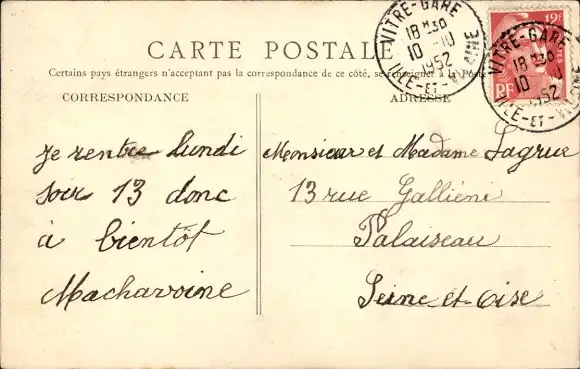 CARTE POSTALE
Certains pays étrangers n'acceptant pas la correspondance de ce côté, se renseigner à la Poste
CORRESPONDANCE
je rentre lundi
soir 13 donc
à bientôt
Macharoine
ADRESSE
Monsieur et Madame Lagrue
13 rue Galliéni
Palaiseau
Seine-et-Oise
VITRE-GARE
18 H 30
10 -10
1952
ILLE-ET-VILAINE
12F
RF
VITRE-GARE
18 H 30
10
1952
ILLE-ET-VILAINE